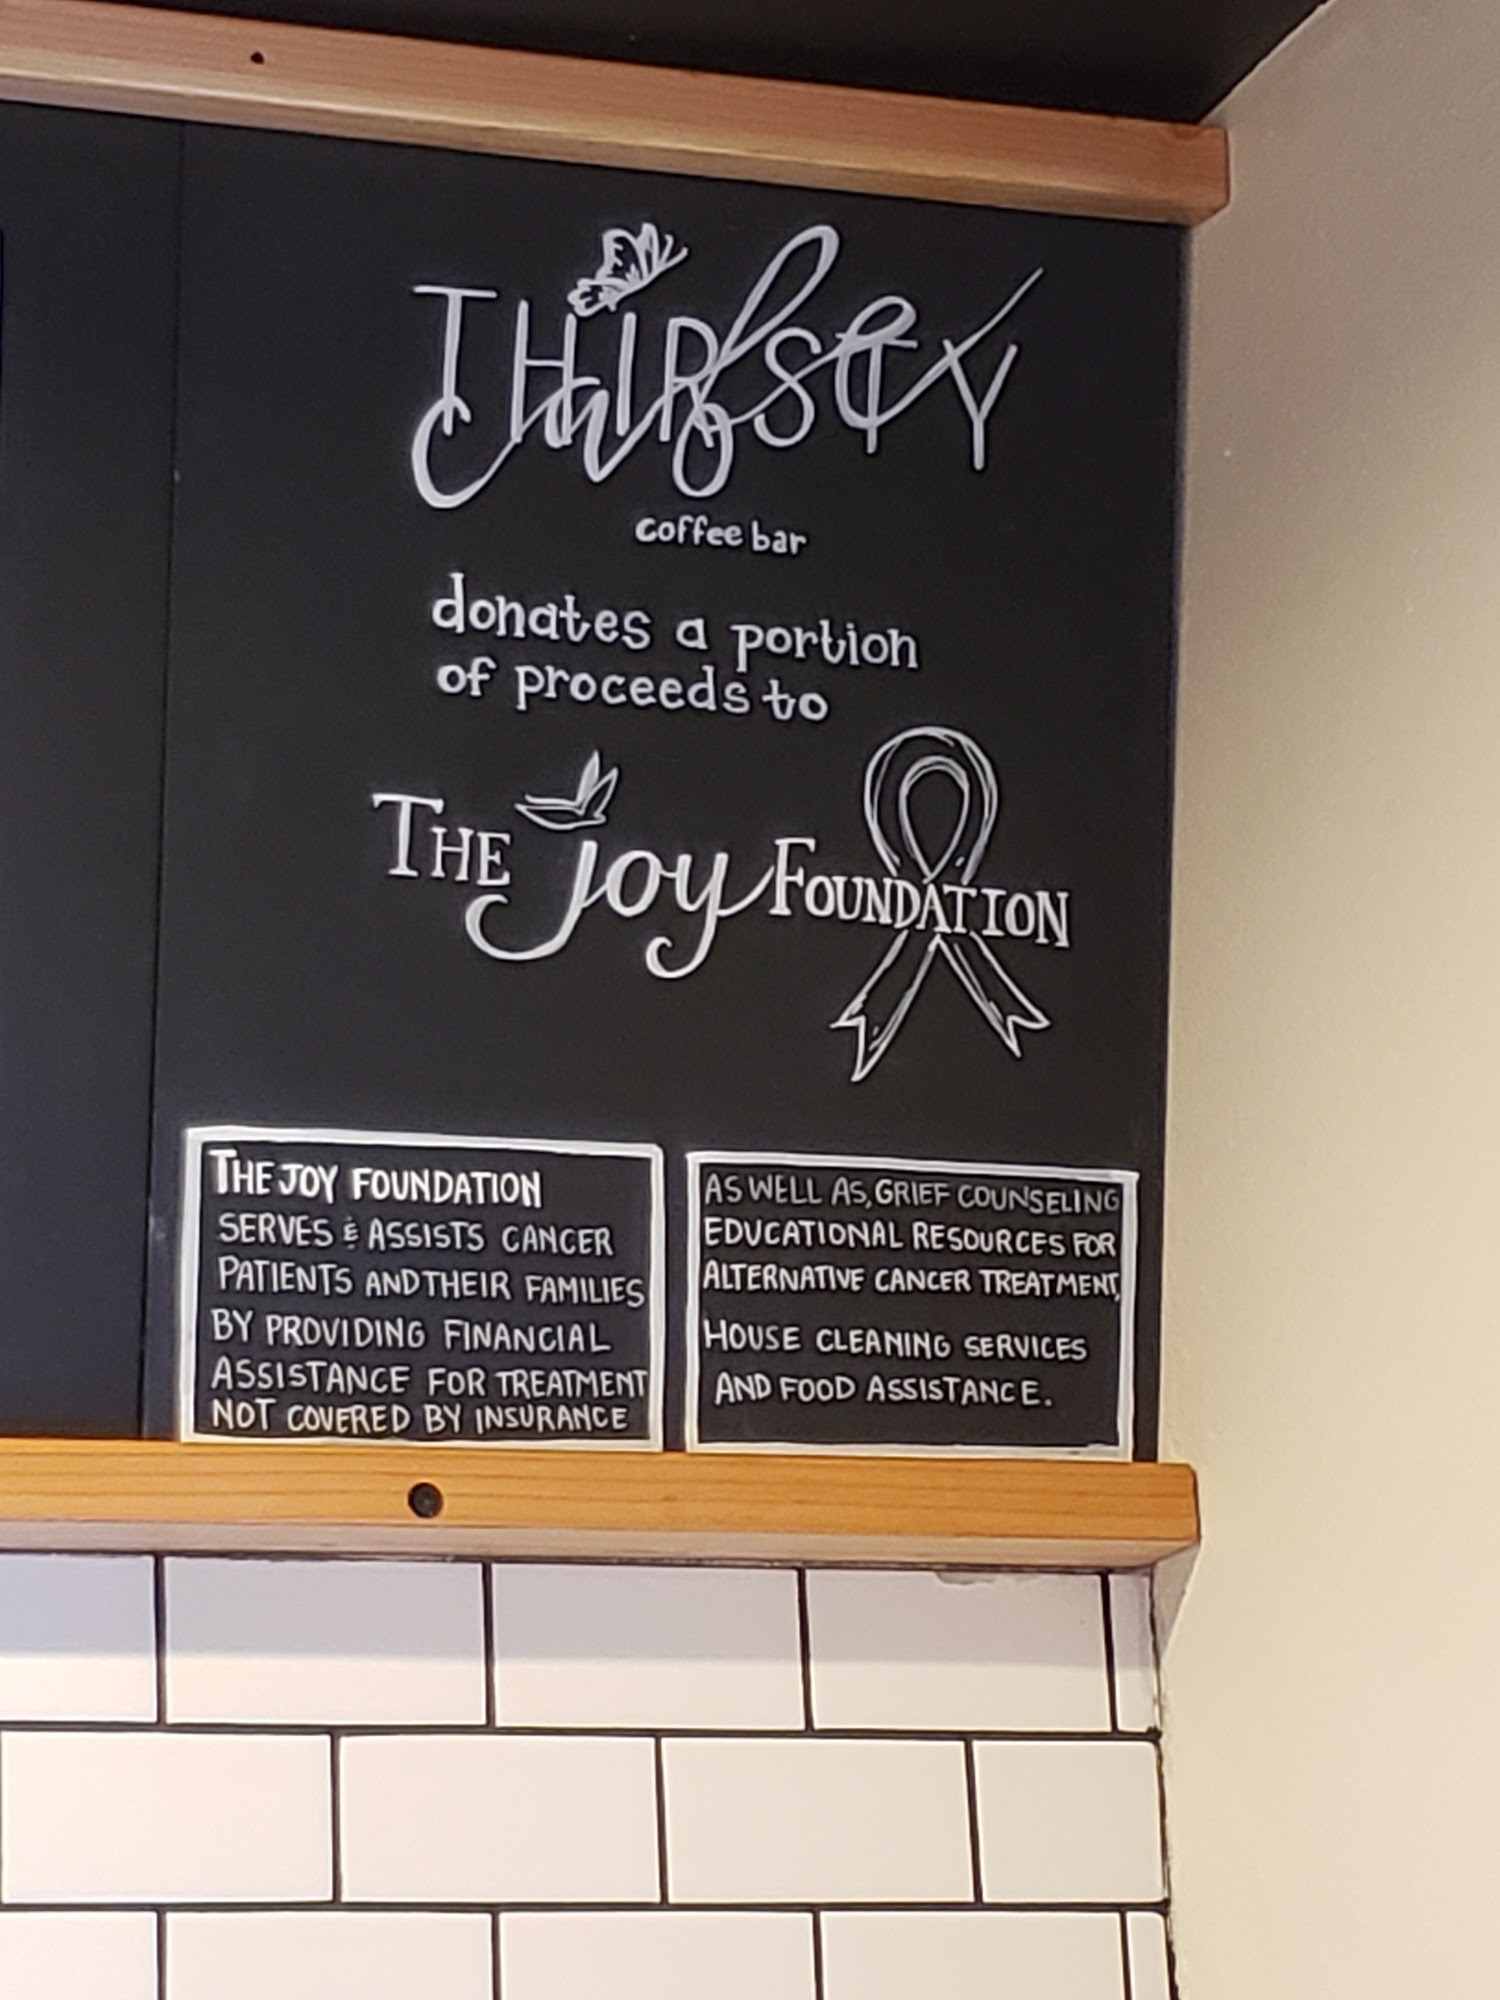 THIRSTY
coffee bar
donates a portion
of proceeds to
THE Joy FOUNDATION
THE JOY FOUNDATION
SERVES & ASSISTS CANCER
PATIENTS AND THEIR FAMILIES
BY PROVIDING FINANCIAL
ASSISTANCE FOR TREATMENT
NOT COVERED BY INSURANCE
AS WELL AS, GRIEF COUNSELING
EDUCATIONAL RESOURCES FOR
ALTERNATIVE CANCER TREATMENT,
HOUSE CLEANING SERVICES
AND FOOD ASSISTANCE.